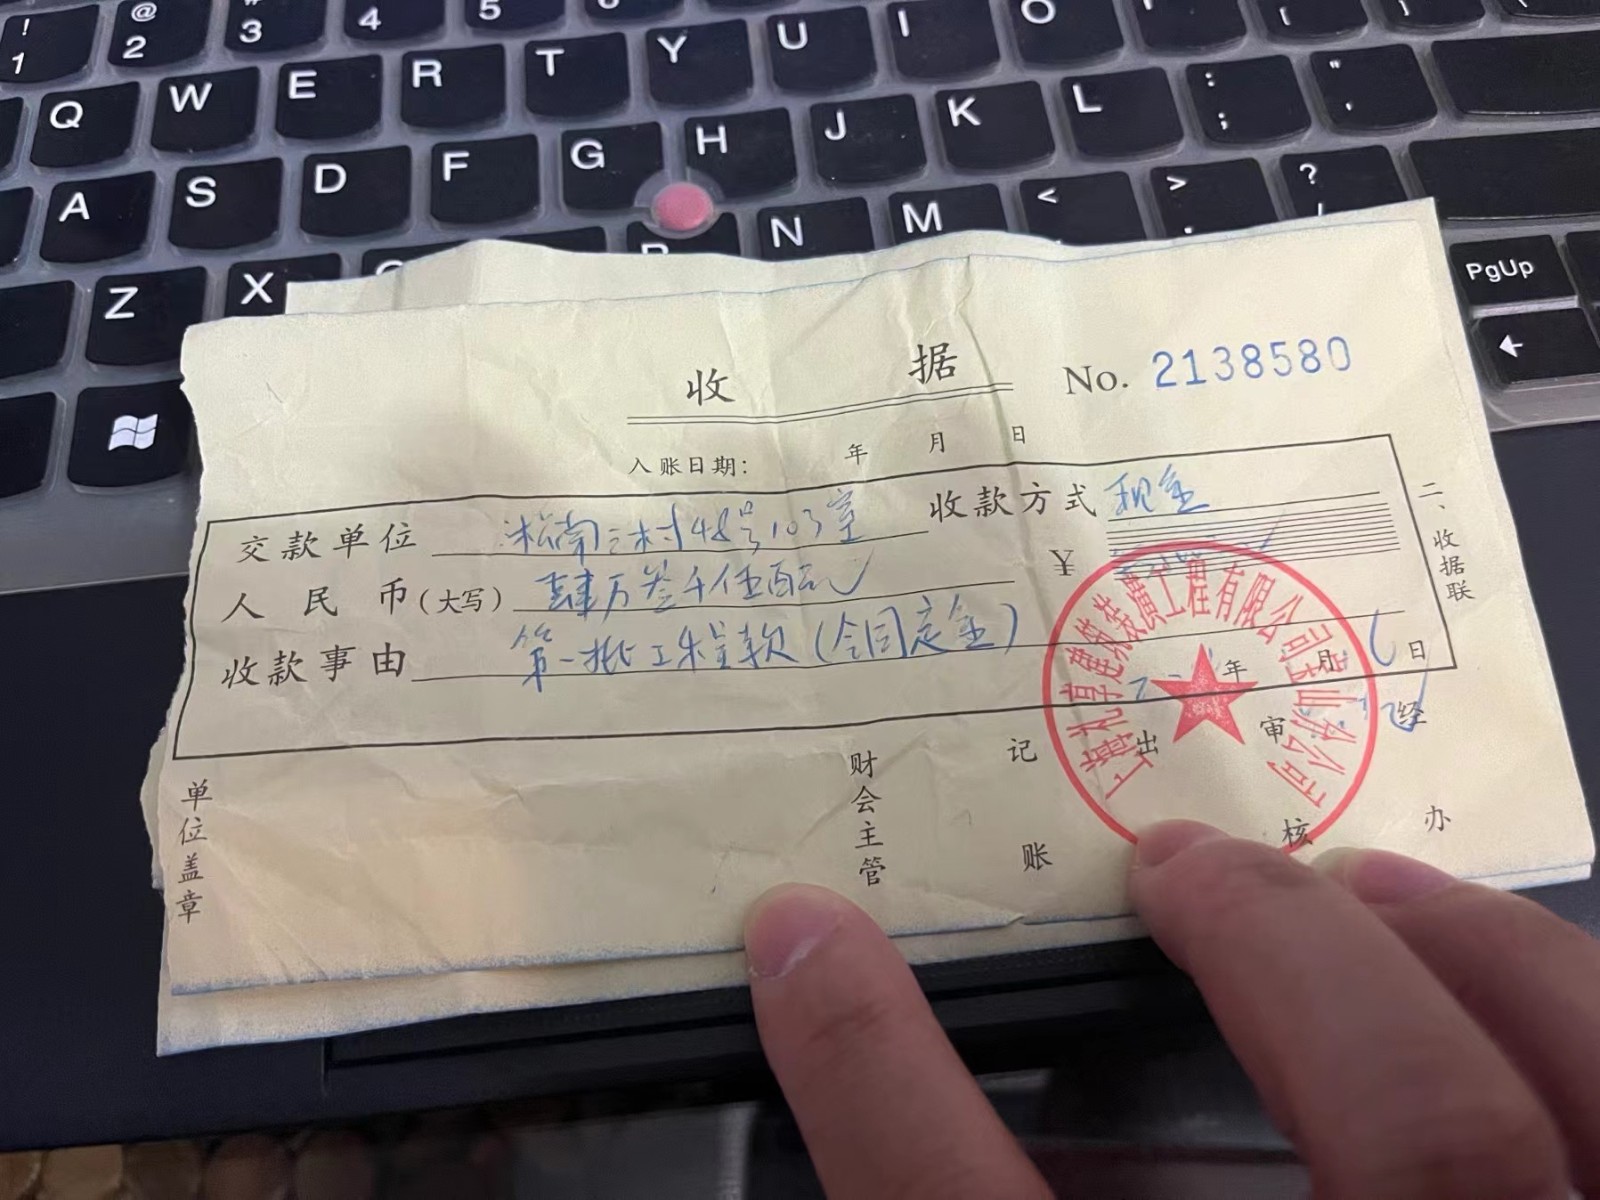 ! 1 @ 2 # 3 4 5
Q W E R T Y U I O
A S D F G H J K L : ; " '
Z X N M < > ?
PgUp
收 据 No. 2138580
入账日期： 年 月 日
交款单位 淞南三村48号103室 收款方式 现金
人民币（大写） 肆万叁千伍佰元 ¥
收款事由 第一批工程款（合同定金）
年 月 日
二、收据联
单位盖章 财会主管 记账 出 审核 经办
建筑装潢工程有限公司宝山分公司